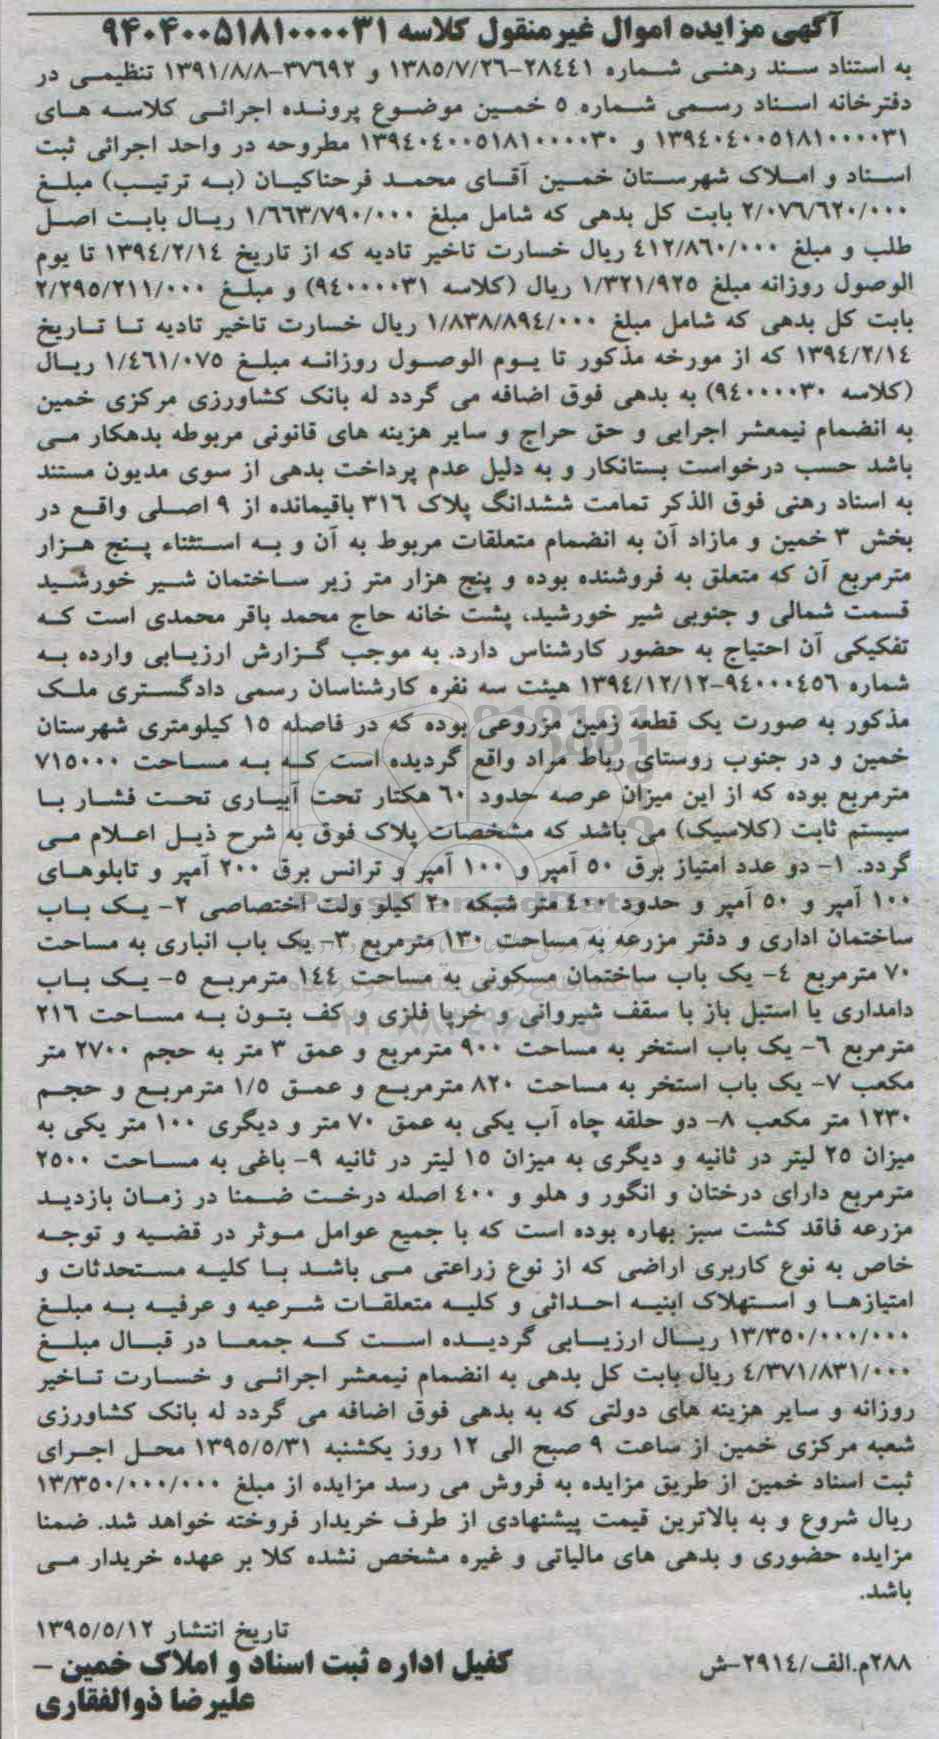 آگهی مزایده اموال غیرمنقول کلاسه ۹۴۰۴۰۰۵۱۸۱۰۰۰۰۳۱
به استناد سند رهنی شماره ۲۸۴۴۱-۱۳۸۵/۷/۲۶ و ۳۷۶۹۲-۱۳۹۱/۸/۸ تنظیمی در
دفترخانه اسناد رسمی شماره ۵ خمین موضوع پرونده اجرائی کلاسه های
۱۳۹۴۰۴۰۰۵۱۸۱۰۰۰۰۳۱ و ۱۳۹۴۰۴۰۰۵۱۸۱۰۰۰۰۳۰ مطروحه در واحد اجرائی ثبت
اسناد و املاک شهرستان خمین آقای محمد فرحناکیان (به ترتیب) مبلغ
۲/۰۷۶/۶۲۰/۰۰۰ بابت کل بدهی که شامل مبلغ ۱/۶۶۳/۷۹۰/۰۰۰ ریال بابت اصل
طلب و مبلغ ۴۱۲/۸۶۰/۰۰۰ ریال خسارت تاخیر تادیه که از تاریخ ۱۳۹۴/۲/۱۴ تا یوم
الوصول روزانه مبلغ ۱/۳۲۱/۹۲۵ ریال (کلاسه ۹۴۰۰۰۰۳۱) و مبلغ ۲/۲۹۵/۲۱۱/۰۰۰
بابت کل بدهی که شامل مبلغ ۱/۸۳۸/۸۹۴/۰۰۰ ریال خسارت تاخیر تادیه تا تاریخ
۱۳۹۴/۲/۱۴ که از مورخه مذکور تا یوم الوصول روزانه مبلغ ۱/۴۶۱/۰۷۵ ریال
(کلاسه ۹۴۰۰۰۰۳۰) به بدهی فوق اضافه می گردد له بانک کشاورزی مرکزی خمین
به انضمام نیمعشر اجرایی و حق حراج و سایر هزینه های قانونی مربوطه بدهکار می
باشد حسب درخواست بستانکار و به دلیل عدم پرداخت بدهی از سوی مدیون مستند
به اسناد رهنی فوق الذکر تمامت ششدانگ پلاک ۳۱۶ باقیمانده از ۹ اصلی واقع در
بخش ۳ خمین و مازاد آن به انضمام متعلقات مربوط به آن و به استثناء پنج هزار
مترمربع آن که متعلق به فروشنده بوده و پنج هزار متر زیر ساختمان شیر خورشید
قسمت شمالی و جنوبی شیر خورشید، پشت خانه حاج محمد باقر محمدی است که
تفکیکی آن احتیاج به حضور کارشناس دارد. به موجب گزارش ارزیابی وارده به
شماره ۹۴۰۰۰۴۵۶-۱۳۹۴/۱۲/۱۲ هیئت سه نفره کارشناسان رسمی دادگستری ملک
مذکور به صورت یک قطعه زمین مزروعی بوده که در فاصله ۱۵ کیلومتری شهرستان
خمین و در جنوب روستای رباط مراد واقع گردیده است که به مساحت ۷۱۵۰۰۰
مترمربع بوده که از این میزان عرصه حدود ۶۰ هکتار تحت آبیاری تحت فشار با
سیستم ثابت (کلاسیک) می باشد که مشخصات پلاک فوق به شرح ذیل اعلام می
گردد. ۱- دو عدد امتیاز برق ۵۰ آمپر و ۱۰۰ آمپر و ترانس برق ۲۰۰ آمپر و تابلوهای
۱۰۰ آمپر و ۵۰ آمپر و حدود ۴۰۰ متر شبکه ۲۰ کیلو ولت اختصاصی ۲- یک باب
ساختمان اداری و دفتر مزرعه به مساحت ۱۳۰ مترمربع ۳- یک باب انباری به مساحت
۷۰ مترمربع ۴- یک باب ساختمان مسکونی به مساحت ۱۴۴ مترمربع ۵- یک باب
دامداری یا استبل باز با سقف شیروانی و خرپا فلزی و کف بتون به مساحت ۲۱۶
مترمربع ۶- یک باب استخر به مساحت ۹۰۰ مترمربع و عمق ۳ متر به حجم ۲۷۰۰ متر
مکعب ۷- یک باب استخر به مساحت ۸۲۰ مترمربع و عمق ۱/۵ مترمربع و حجم
۱۲۳۰ متر مکعب ۸- دو حلقه چاه آب یکی به عمق ۷۰ متر و دیگری ۱۰۰ متر یکی به
میزان ۲۵ لیتر در ثانیه و دیگری به میزان ۱۵ لیتر در ثانیه ۹- باغی به مساحت ۲۵۰۰
مترمربع دارای درختان و انگور و هلو و ۴۰۰ اصله درخت ضمنا در زمان بازدید
مزرعه فاقد کشت سبز بهاره بوده است که با جمیع عوامل موثر در قضیه و توجه
خاص به نوع کاربری اراضی که از نوع زراعتی می باشد با کلیه مستحدثات و
امتیازها و استهلاک ابنیه احداثی و کلیه متعلقات شرعیه و عرفیه به مبلغ
۱۳/۳۵۰/۰۰۰/۰۰۰ ریال ارزیابی گردیده است که جمعا در قبال مبلغ
۴/۳۷۱/۸۳۱/۰۰۰ ریال بابت کل بدهی به انضمام نیمعشر اجرائی و خسارت تاخیر
روزانه و سایر هزینه های دولتی که به بدهی فوق اضافه می گردد له بانک کشاورزی
شعبه مرکزی خمین از ساعت ۹ صبح الی ۱۲ روز یکشنبه ۱۳۹۵/۵/۳۱ محل اجرای
ثبت اسناد خمین از طریق مزایده به فروش می رسد مزایده از مبلغ ۱۳/۳۵۰/۰۰۰/۰۰۰
ریال شروع و به بالاترین قیمت پیشنهادی از طرف خریدار فروخته خواهد شد. ضمنا
مزایده حضوری و بدهی های مالیاتی و غیره مشخص نشده کلا بر عهده خریدار می
باشد.
تاریخ انتشار ۱۳۹۵/۵/۱۲
۲۸۸م.الف/۲۹۱۴-ش
کفیل اداره ثبت اسناد و املاک خمین –
علیرضا ذوالفقاری